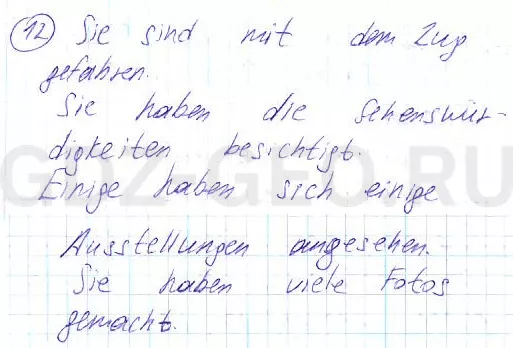 12 Sie sind mit dem Zug
gefahren.
Sie haben die Sehenswür-
digkeiten besichtigt.
GDZ-GEO.RU
Einige haben sich einige
Ausstellungen angesehen.
Sie haben viele Fotos
gemacht.